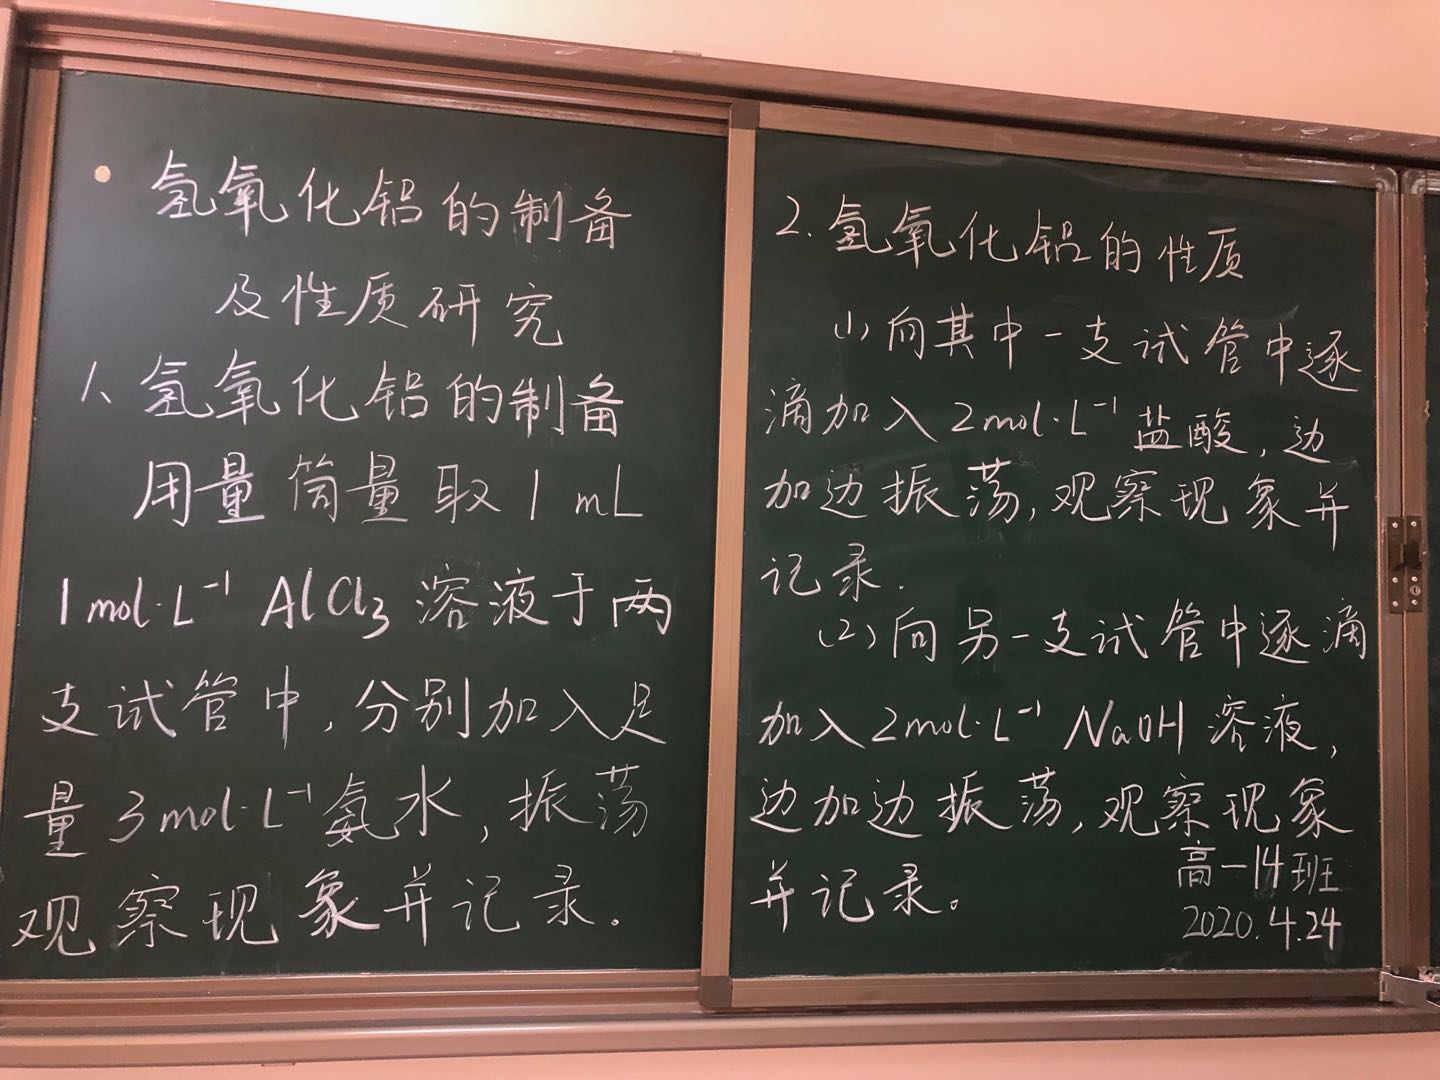 氢氧化铝的制备
及性质研究
1、氢氧化铝的制备
用量筒量取1mL
1mol·L⁻¹ AlCl₃溶液于两
支试管中,分别加入足
量3mol·L⁻¹氨水,振荡
观察现象并记录。
2.氢氧化铝的性质
(1)向其中一支试管中逐
滴加入2mol·L⁻¹盐酸,边
加边振荡,观察现象并
记录.
(2)向另一支试管中逐滴
加入2mol·L⁻¹ NaOH溶液,
边加边振荡,观察现象
并记录。
高一14班
2020.4.24